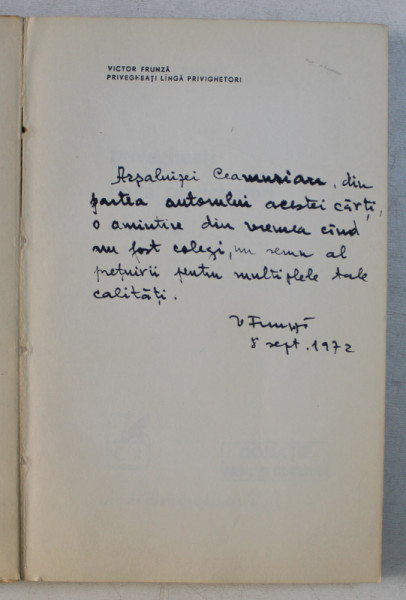 VICTOR FRUNZĂ
PRIVEGHEAȚI LÎNGĂ PRIVIGHETORI
Arșaluisei Ceamurian, din
partea autorului acestei cărți,
o amintire din vremea cînd
am fost colegi, un semn al
prețuirii pentru multiplele tale
calități.
V Frunză
8 sept. 1972